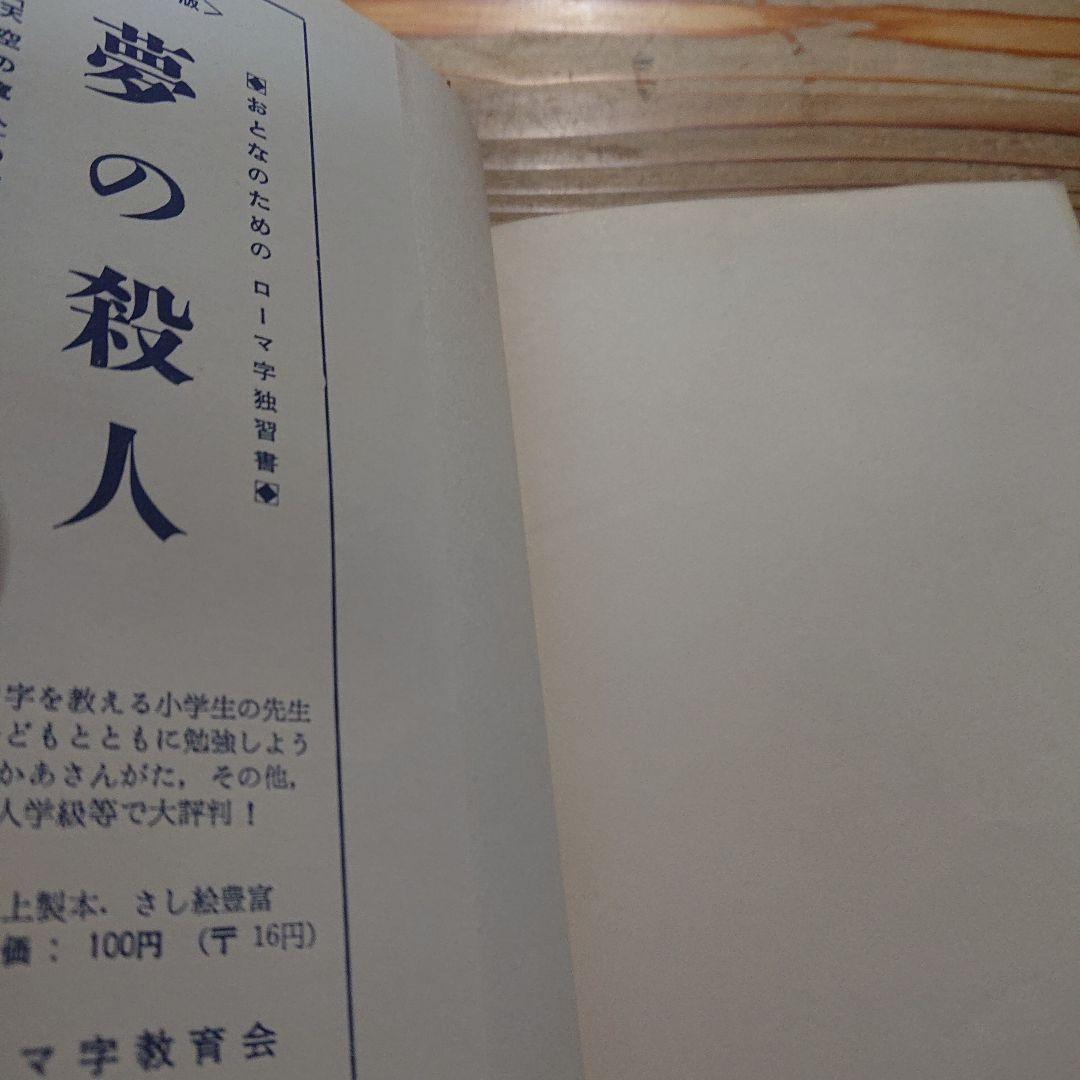 版＞
おとなのための ローマ字独習書
夢の殺人
天空の
字を教える小学生の先生
どもとともに勉強しよう
かあさんがた，その他，
人学級等で大評判！
上製本．さし絵豊富
価： 100円 （〒 16円）
マ字教育会